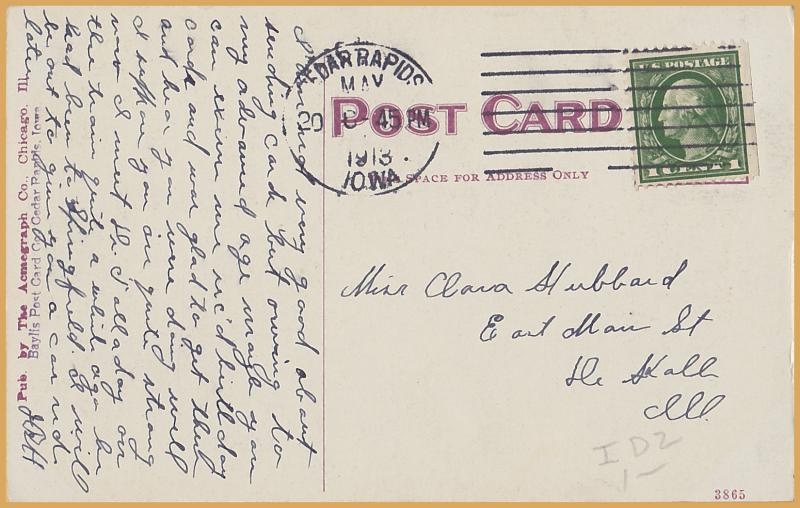 I am not very good about
sending cards but owing to
my advanced age maybe you
can excuse me rec'd birthday
card and was glad to get the
and hear you were doing well
I suppose you are quite strong
now I met De on
the train quite a while ago he
had been to Springfield. I will
be out to give you a car ride
later
JRH
Pub. by The Acmegraph Co., Chicago, Ill.
Baylis Post Card Co., Cedar Rapids, Iowa
CEDAR RAPIDS
MAY
20
45 PM
1913.
IOWA
POST CARD
SPACE FOR ADDRESS ONLY
U.S. POSTAGE
1 CENT 1
Miss Clara Hubbard
East Main St
De Kalb
Ill
ID2
1-
3865